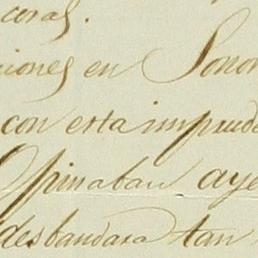 ciones en Sonor
con esta imprude
Opinaban aye
desbandara tan